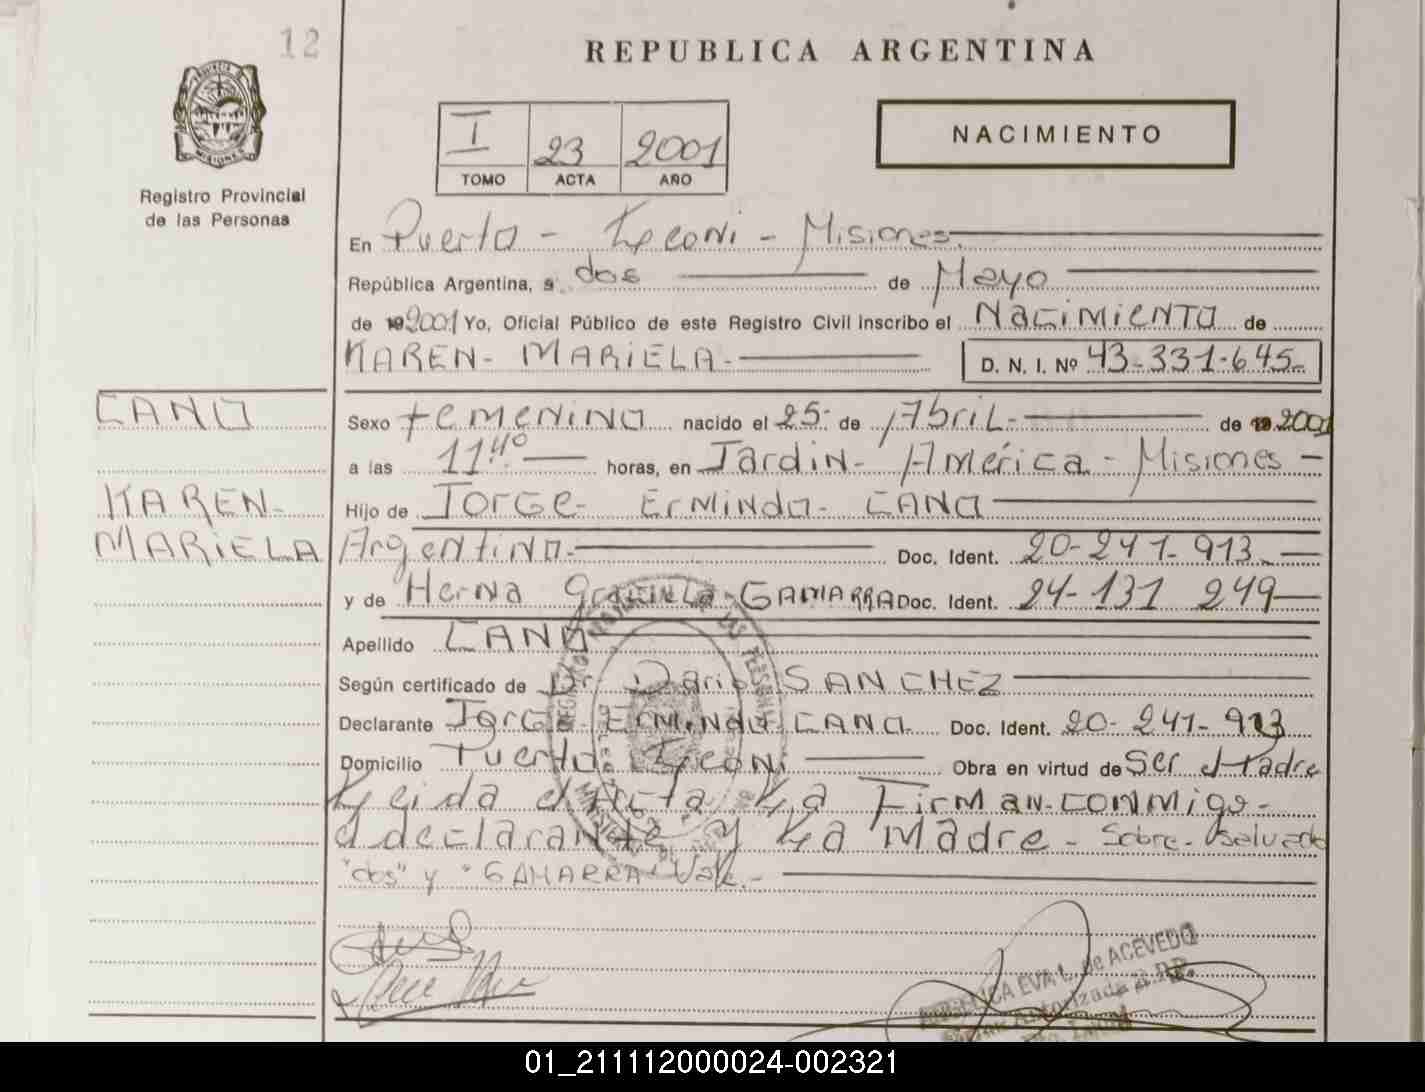 12
REPUBLICA ARGENTINA
I 23 2001
TOMO ACTA AÑO
NACIMIENTO
MISIONES
Registro Provincial
de las Personas
En Puerto - Leoni - Misiones.
República Argentina, a dos de Mayo
de 192001 Yo, Oficial Público de este Registro Civil inscribo el Nacimiento de
KAREN - MARIELA - D. N. I. Nº 43-331-645
CANO
Sexo Femenino nacido el 25 de Abril - de 19 2001
a las 11 40 horas, en Jardin - America - Misiones -
KAREN -
Hijo de Jorge - Ermindo - CANO
MARIELA
Argentino - Doc. Ident. 20-241-913
y de Herna Graciela - GAMARRA Doc. Ident. 24-131 249
Apellido CANO
Según certificado de Dr. Dario SANCHEZ
Declarante Jorge - Ermindo CANO Doc. Ident. 20-241-913
Domicilio Puerto Leoni Obra en virtud de Ser el Padre
Leida el Acta La Firman - conmigo -
el declarante y La Madre - Sobre -
"dos" y "GAMARRA" Vale. -
EVA L. de ACEVEDO
01_211112000024-002321